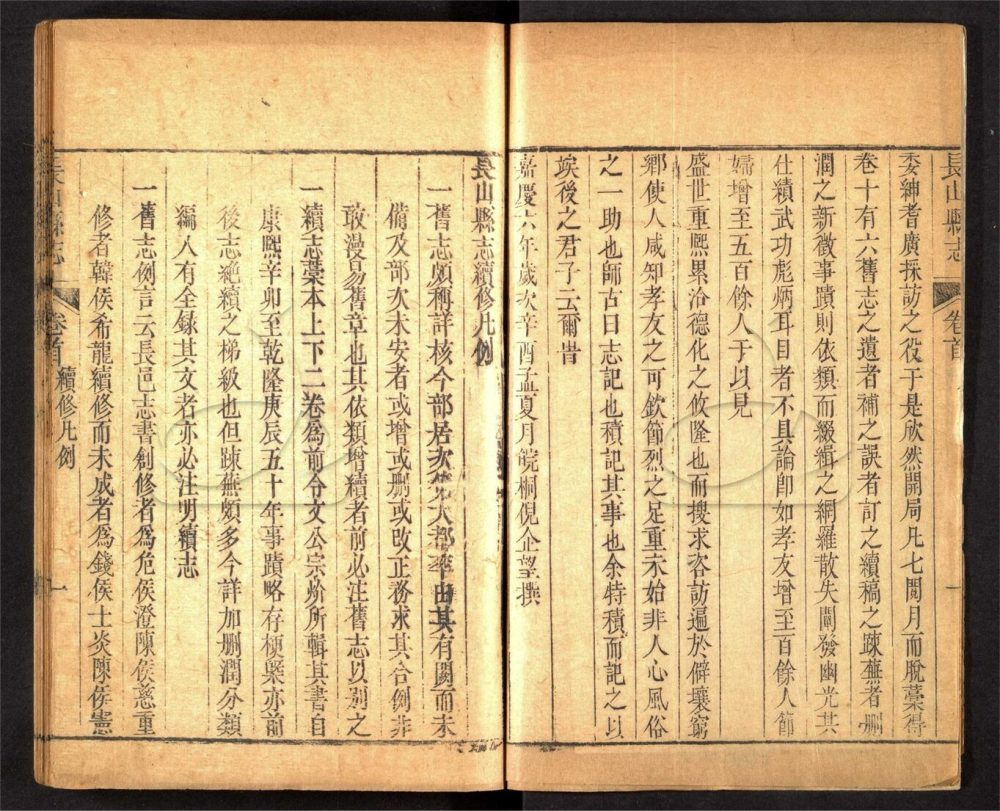 長山縣志 卷首 一
委紳耆廣採訪之役于是欣然開局凡七閱月而脫藁得
卷十有六舊志之遺者補之誤者訂之續稿之踈蕪者刪
潤之新徵事蹟則依類而綴緝之網羅散失闡發幽光其
仕績武功彪炳耳目者不具論卽如孝友增至百餘人節
婦增至五百餘人于以見
盛世重熙累洽德化之攸隆也而搜求咨訪遍於僻壤窮
鄉使人咸知孝友之可欽節烈之足重未始非人心風俗
之一助也師古曰志記也積記其事也余特積而記之以
俟後之君子云爾旹
嘉慶六年歲次辛酉孟夏月皖桐倪企望撰
長山縣志續修凡例
一舊志頗稱詳核今部居次
部率由其有闕而未
備及部次未安者或增或刪或改正務求其合例非
敢漫易舊章也其依類增續者前必注舊志以別之
一續志藁本上下二卷爲前令文公宗
所輯其書自
康熙辛卯至乾隆庚辰五十年事蹟略存梗槩亦前
後志絶續之梯級也但踈蕪頗多今詳加刪潤分類
編入有全録其文者亦必注明續志
一舊志例言云長邑志書創修者爲危侯澄陳侯慈重
修者韓侯希龍續修而未成者爲錢侯士炎陳侯憲
長山縣志 卷首 續修凡例 一